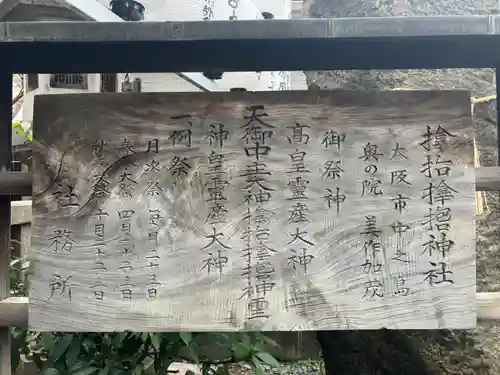 𪮷抬𪮷𪮇神社
大阪市中之島
奥の院 美作加茂
御祭神
高皇霊産大神
天御中主大神𪮷抬𪮷𪮇神霊
神皇霊産大神
一、例祭
月次祭 毎月二十三日
春大祭 四月二十三日
秋大祭 十月二十三日
社務所